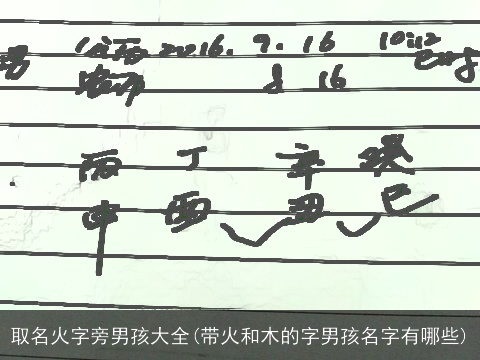 2016. 9. 16 10:12
8 16
丙 丁 辛 癸
申 酉 丑 巳
取名火字旁男孩大全(带火和木的字男孩名字有哪些)